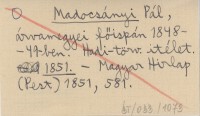 O Madocsányi Pál,
árvamegyei főispán 1848-
-49-ben. Hadi-törv. itélet.
1851. - Magyar Hirlap
(Pest) 1851, 581.